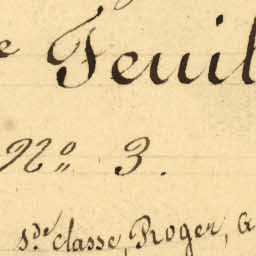 e Feuil
No 3.
s.de classe, Roger, a